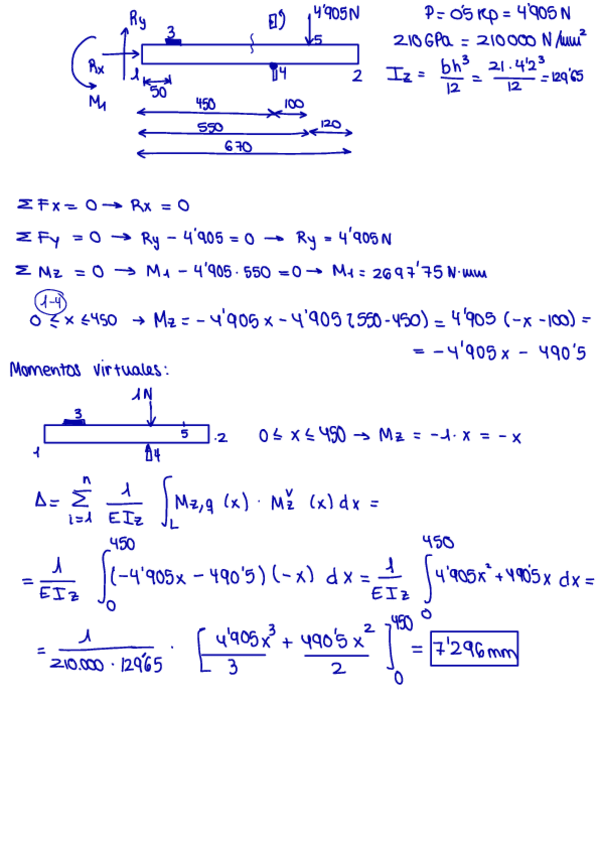 Ry
4'905N
P = 0'5 Kp = 4'905 N
3
5
210GPa = 210000 N/mm²
Rx
1
4
2
Iz = bh³/12 = 21·4'2³/12 = 129'65
M1
50
450
100
550
120
670
ΣFx = 0 → Rx = 0
ΣFy = 0 → Ry - 4'905 = 0 → Ry = 4'905 N
ΣMz = 0 → M1 - 4'905·550 = 0 → M1 = 2697'75 N·mm
1-4
0 ≤ x ≤ 450 → Mz = -4'905x - 4'905 (550-450) = 4'905 (-x - 100) =
= -4'905x - 490'5
Momentos virtuales:
1N
3
5
1
4
2
0 ≤ x ≤ 450 → Mz = -1·x = -x
Δ = Σ i=1 n 1/EIz ∫L Mz,q (x) · Mz^v (x) dx =
= 1/EIz ∫0 450 (-4'905x - 490'5)(-x) dx = 1/EIz ∫0 450 4'905x² + 490'5x dx =
= 1/210.000·129'65 · [4'905x³/3 + 490'5x²/2]0 450 = 7'296mm